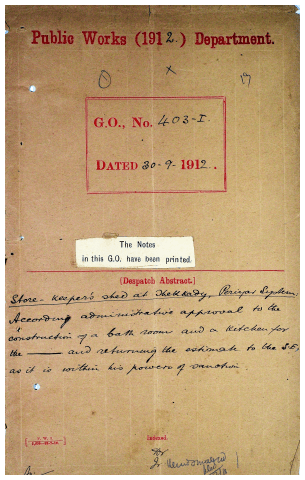 Public Works (1912.) Department.
x
G.O., No. 403-I.
DATED 30-9-1912.
The Notes
in this G.O. have been printed.
[Despatch Abstract]
Store-keeper's shed at Thekkady, Periyar System
According administrative approval to the
construction of a bath room and a kitchen for
the —— and returning the estimate to the S.E,
as it is within his powers of sanction.
Indexed.